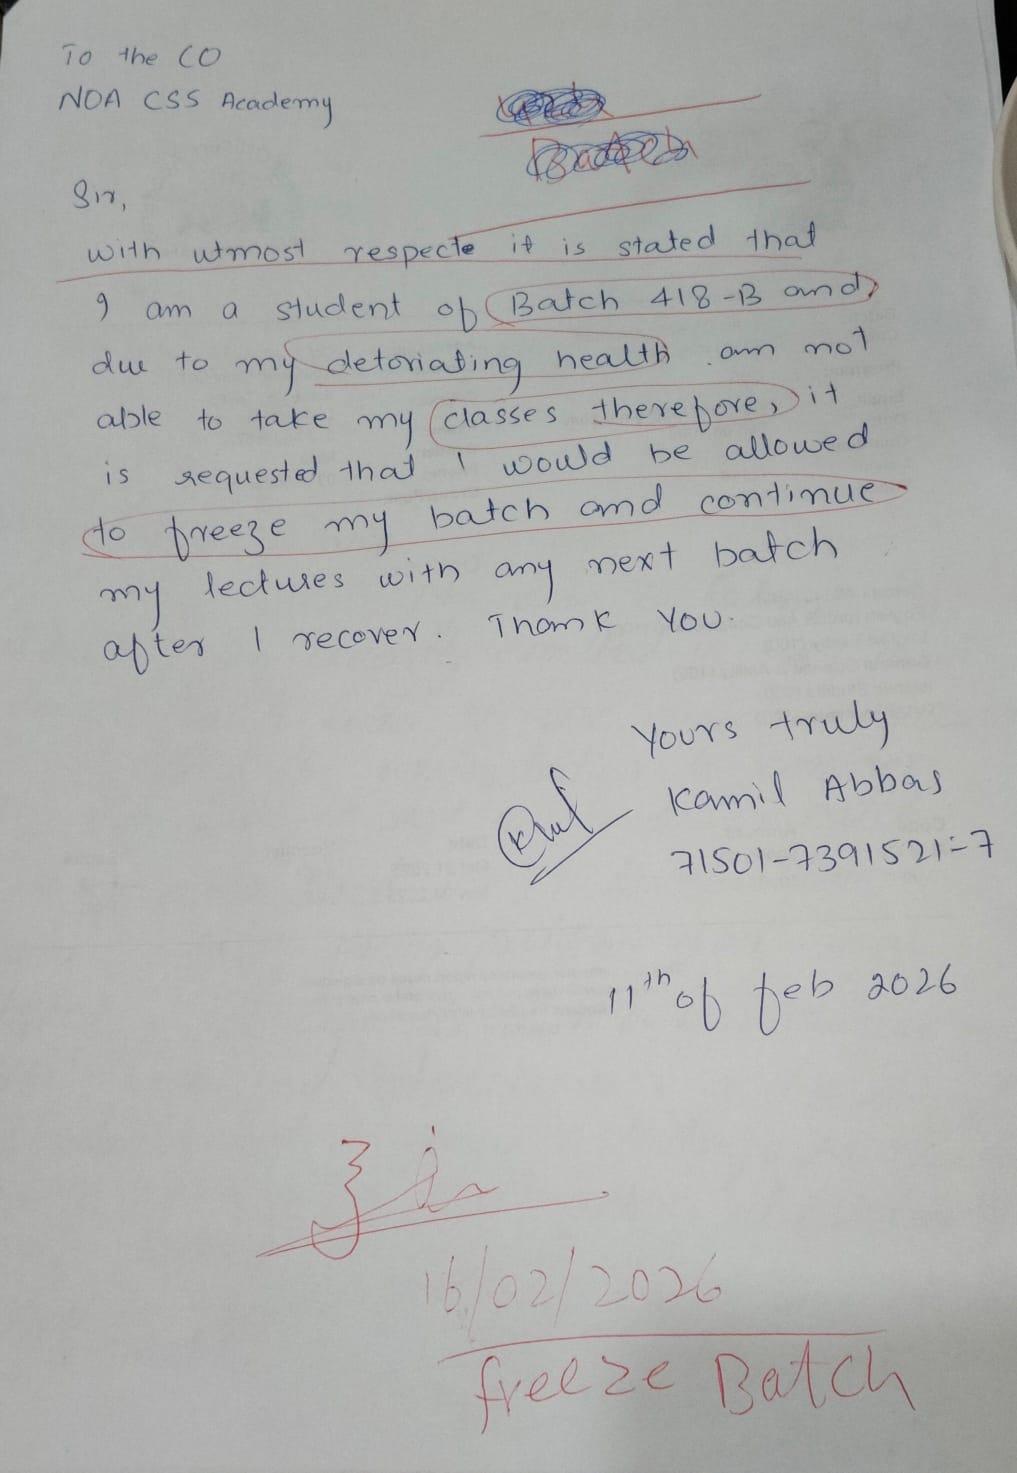 To the CO
NOA CSS Academy
Batch
Sir,
with utmost respecte it is stated that
I am a student of Batch 418-B and
due to my detoriating health am not
able to take my classes therefore, it
is requested that I would be allowed
to freeze my batch and continue
my lectures with any next batch
after I recover. Thank You.
Yours truly
Kamil Abbas
71501-7391521-7
11th of feb 2026
16/02/2026
freeze Batch